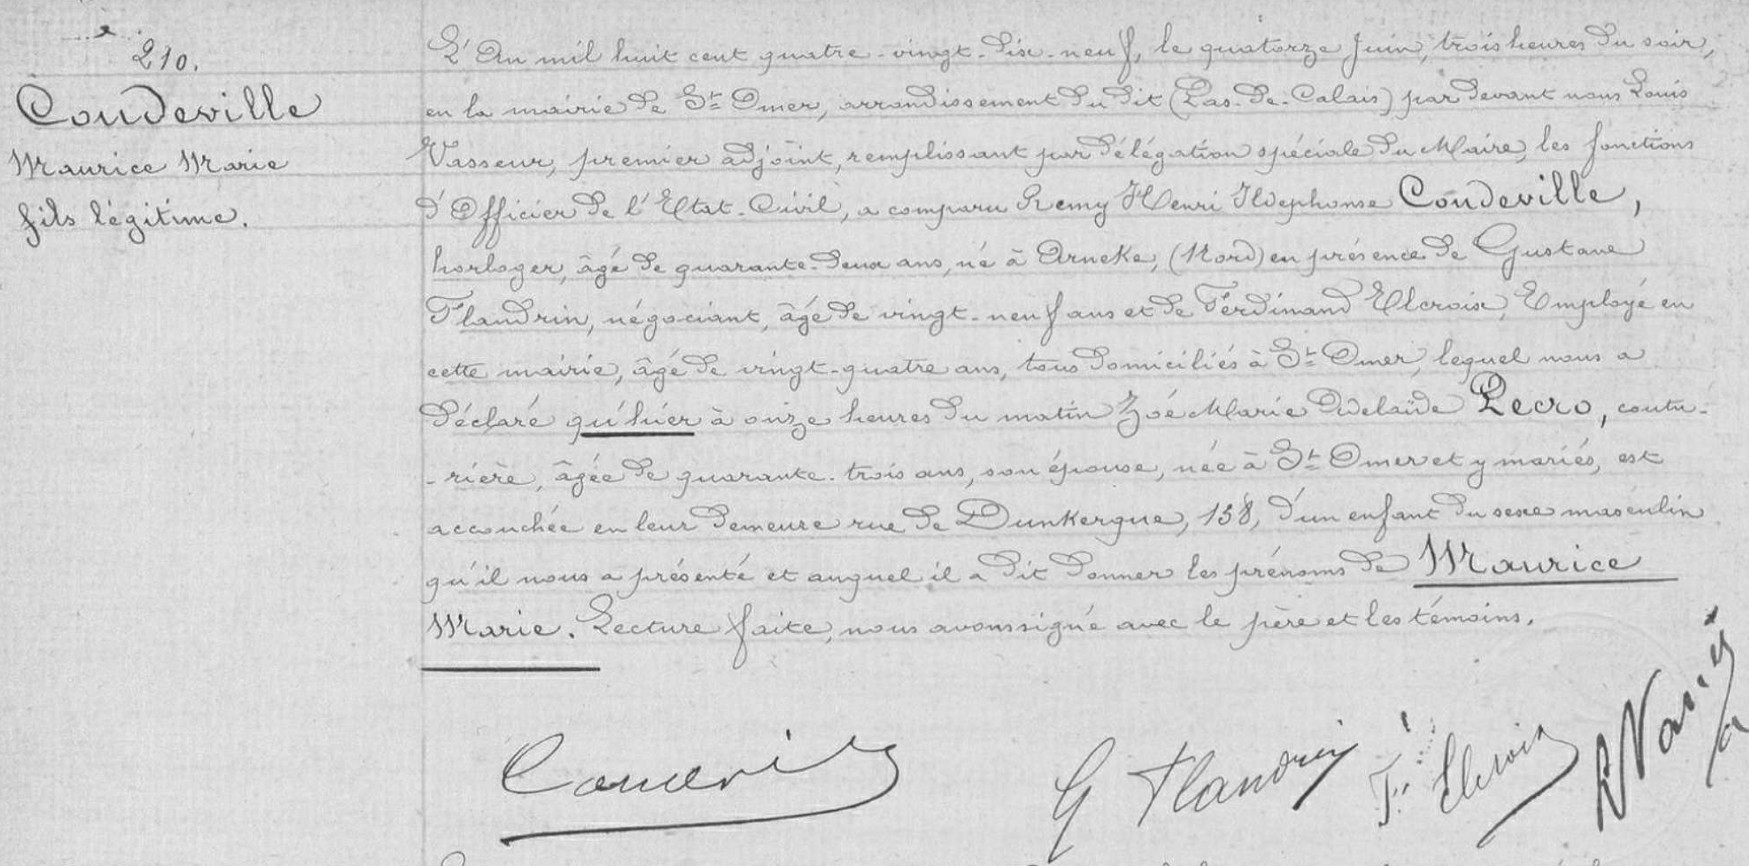 210.
Coudeville
Maurice Marie
fils légitime.
L'An mil huit cent quatre-vingt-dix-neuf, le quatorze Juin, trois heures du soir,
en la mairie de St Omer, arrondissement du dit (Pas-de-Calais) par devant nous Louis
Vasseur, premier adjoint, remplissant par délégation spéciale du Maire, les fonctions
d'Officier de l'Etat-Civil, a comparu Remy Henri Ildephonse Coudeville,
horloger, âgé de quarante-deux ans, né à Arneke, (Nord) en présence de Gustave
Flandrin, négociant, âgé de vingt-neuf ans et de Ferdinand Elcroix, Employé en
cette mairie, âgé de vingt-quatre ans, tous domiciliés à St Omer, lequel nous a
déclaré qu'hier à onze heures du matin Zoé Marie Adelaïde Lecro, coutu-
-rière, âgée de quarante-trois ans, son épouse, née à St Omer et y mariés, est
accouchée en leur demeure rue de Dunkerque, 138, d'un enfant du sexe masculin
qu'il nous a présenté et auquel il a dit donner les prénoms de Maurice
Marie. Lecture faite, nous avons signé avec le père et les témoins.
G Flandrin
F. Elcroix